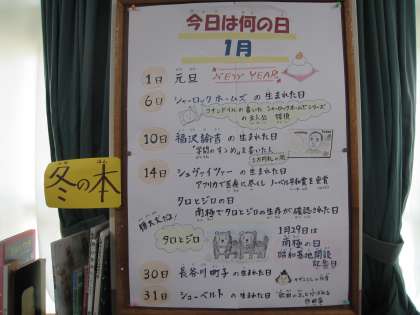 今日は何の日
1月
1日 元旦 NEW YEAR
6日 シャーロックホームズの生まれた日
コナン・ドイルの書いたシャーロックホームズシリーズ
の主人公 探偵
10日 福沢諭吉の生まれた日
「学問のすゝめ」を書いた人
1万円札の顔
14日 シュヴァイツァーの生まれた日
アフリカで医療に尽くし ノーベル平和賞を受賞
タロとジロの日
南極でタロとジロの生存が確認された日
タロとジロ
1月29日は
南極の日
昭和基地開設
記念日
30日 長谷川町子の生まれた日
サザエさんの作者
31日 シューベルトの生まれた日
冬の本
ふゆ ほん